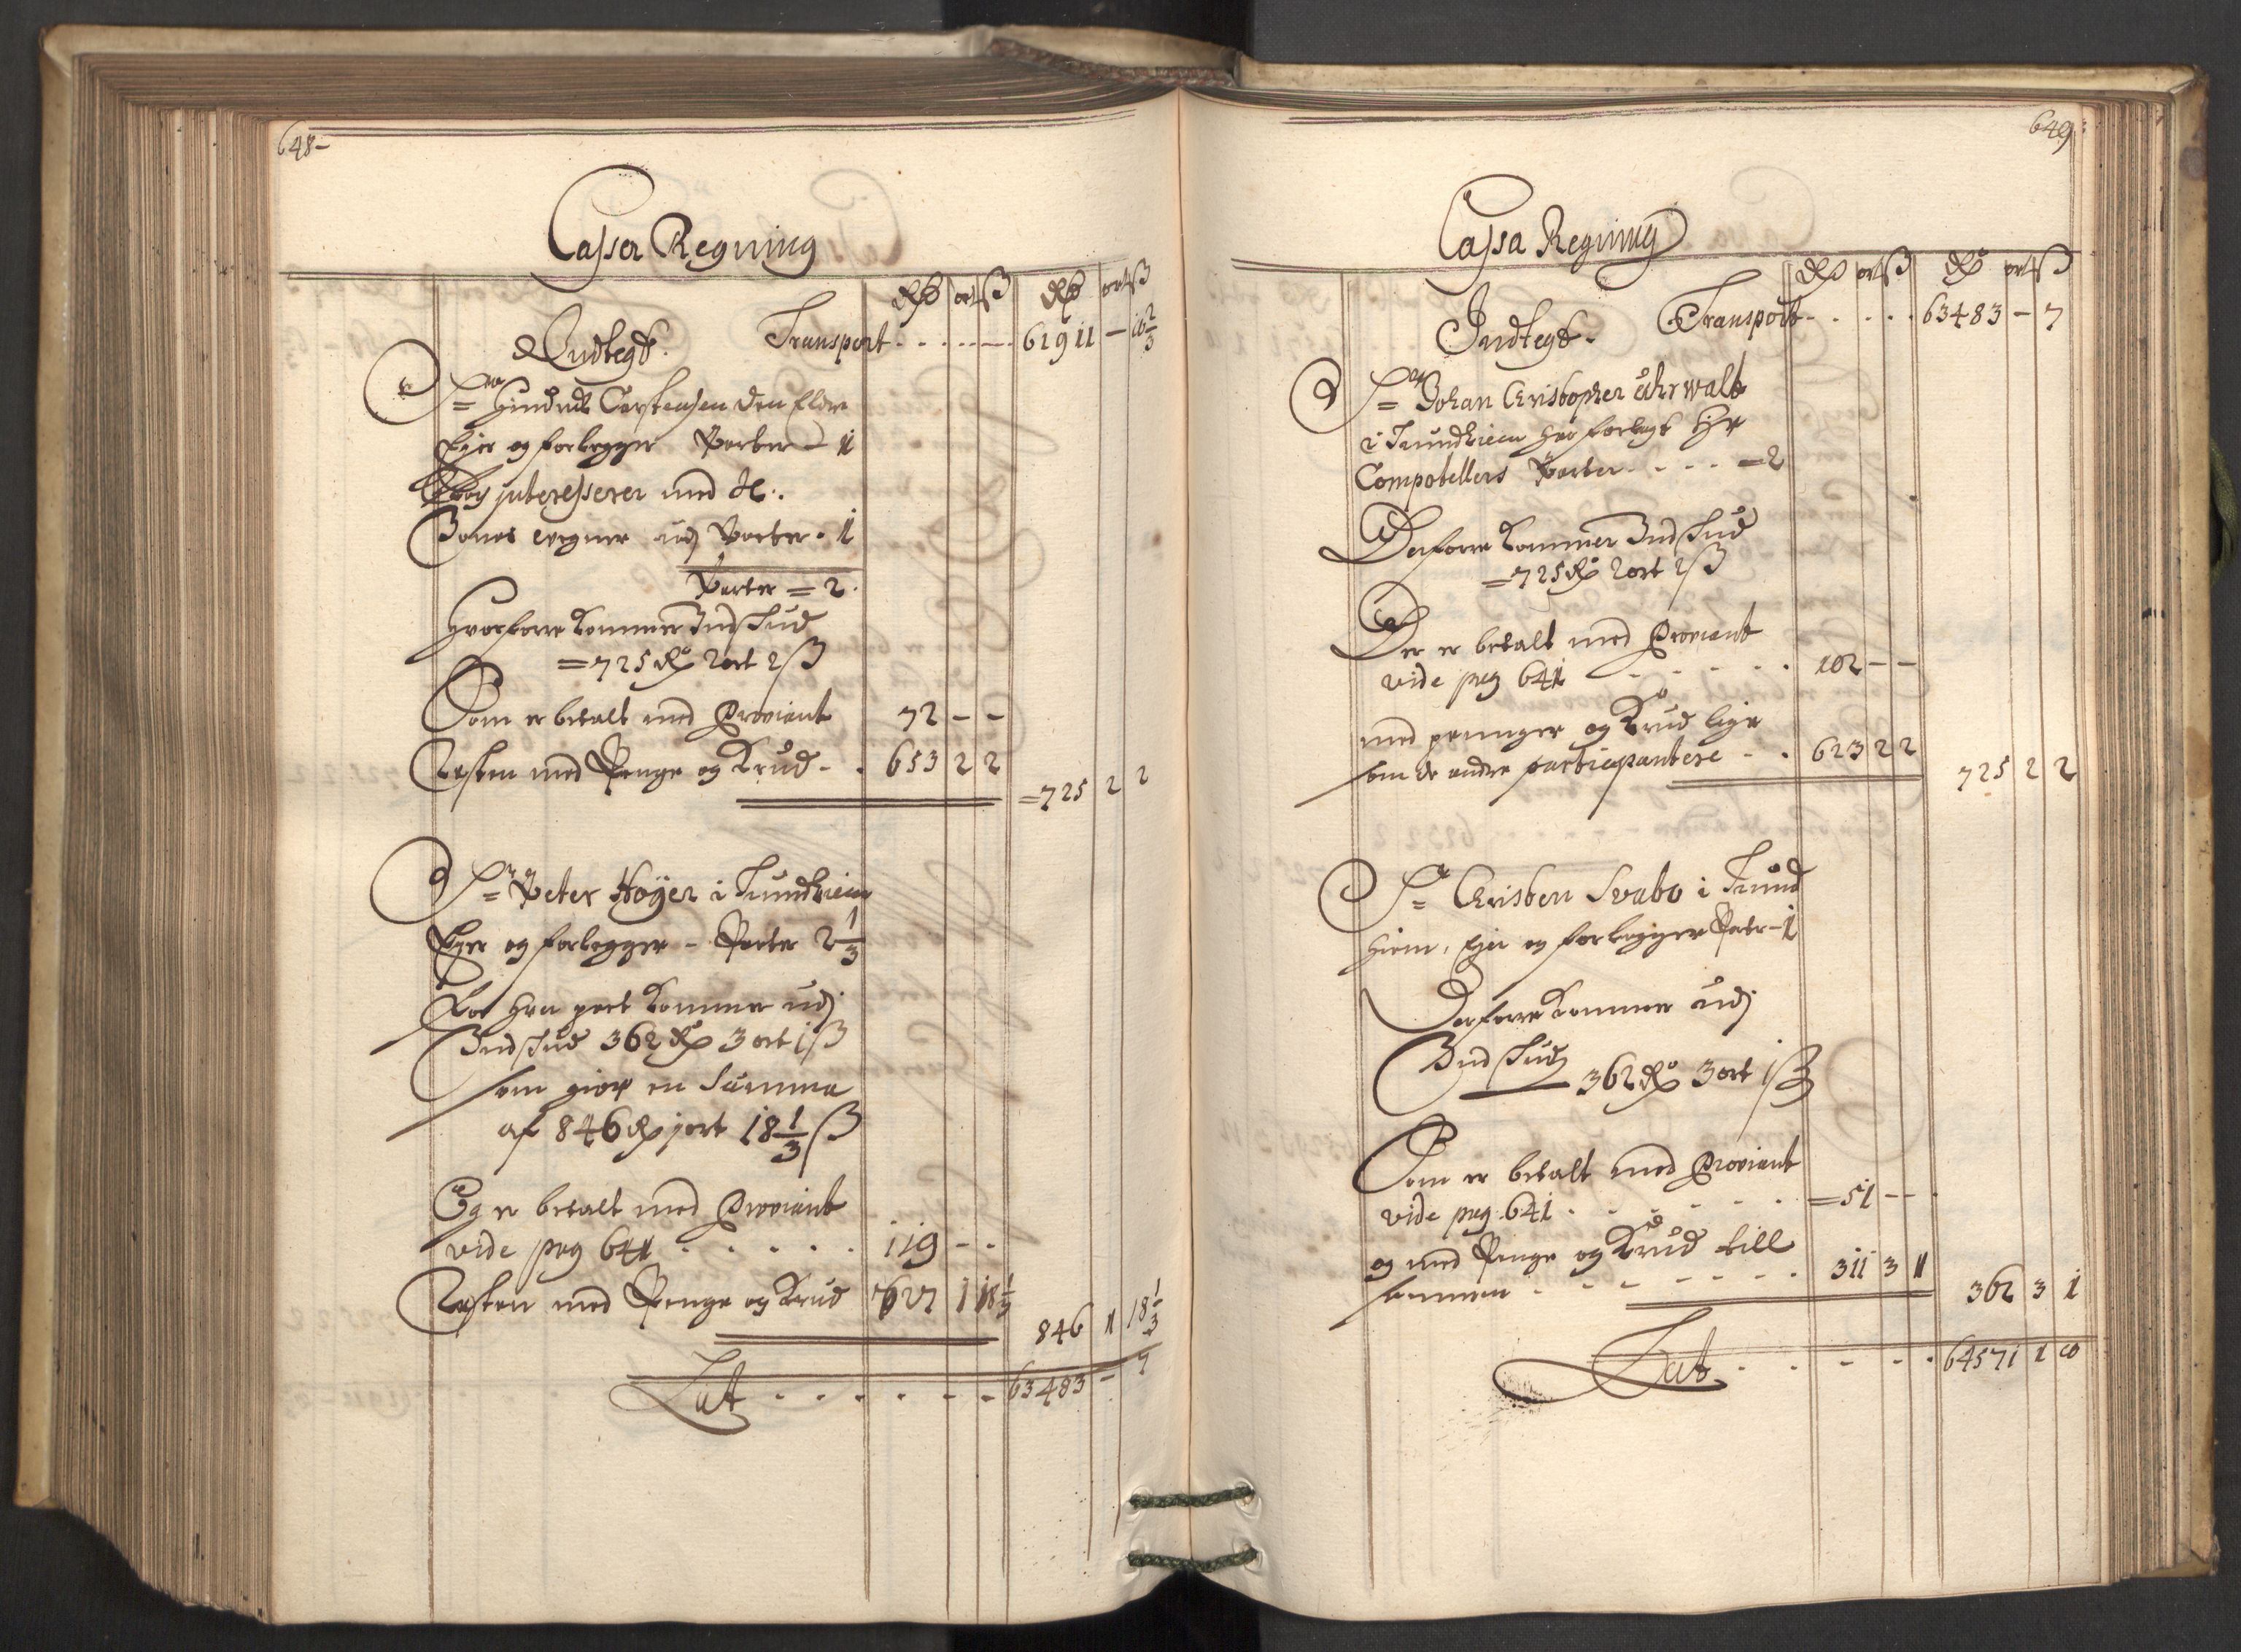 648-
Cassa Regning
Rdr ort ß Rdr ort ß
Indtegt. Transport . . . . . . 61911 - 16 2/3
Sr Hindrich Carstensen den Eldre
Ejer og forlegger Parter - 1
og interesserer med Hr:
Bones wegner udj Parter . 1
Parter = 2.
Hvorforre kommer Indskud
= 725 Rdr 2 ort 2 ß
Som er betalt med Proviant 72 - -
Resten med Penge og Krud - . 653 2 2
= 725 2 2
Sr Peter Höyer i Trundhiem
Ejer og forlegger - Parter 2 1/3
For hver part kommer udj
Indskud 362 Rdr 3 ort 1 ß
som giør en Summa
af 846 Rdr 1 ort 18 1/3 ß
Og er betalt med Proviant
vide pag 641 . . . . . 119 - -
Resten med Penge og Krud 727 1 18 1/3
846 1 18 1/3
Lat . . . . . . - 63483 - 7
649
Cassa Regning
Rdr ort ß Rdr ort ß
Indtegt. Transport - . . . . 63483 - 7
Sr Johan Christopher Uhrwalt
i Trundhiem har forlagt Hr
Compotellers Parter . - . . = 2
Derforre kommer Indskud
= 725 Rdr 2 ort 2 ß
Der er betalt med Proviant
vide pag 641 - . . . . 102 - -
med penger og Krud lige
som de andre participantere - . 623 2 2
725 2 2
Sr Christen Svabo i Trund
hiem, Ejer og forlegger Parter - 1
Derforre kommer udj
Indskud 362 Rdr 3 ort 1 ß
Som er betalt med Proviant
vide pag. 641 . . . . . = 51 - - .
og med Penge og Krud till
sammen . - - - - - . 311 3 1
362 3 1
Lat . . - - . 64571 1 10